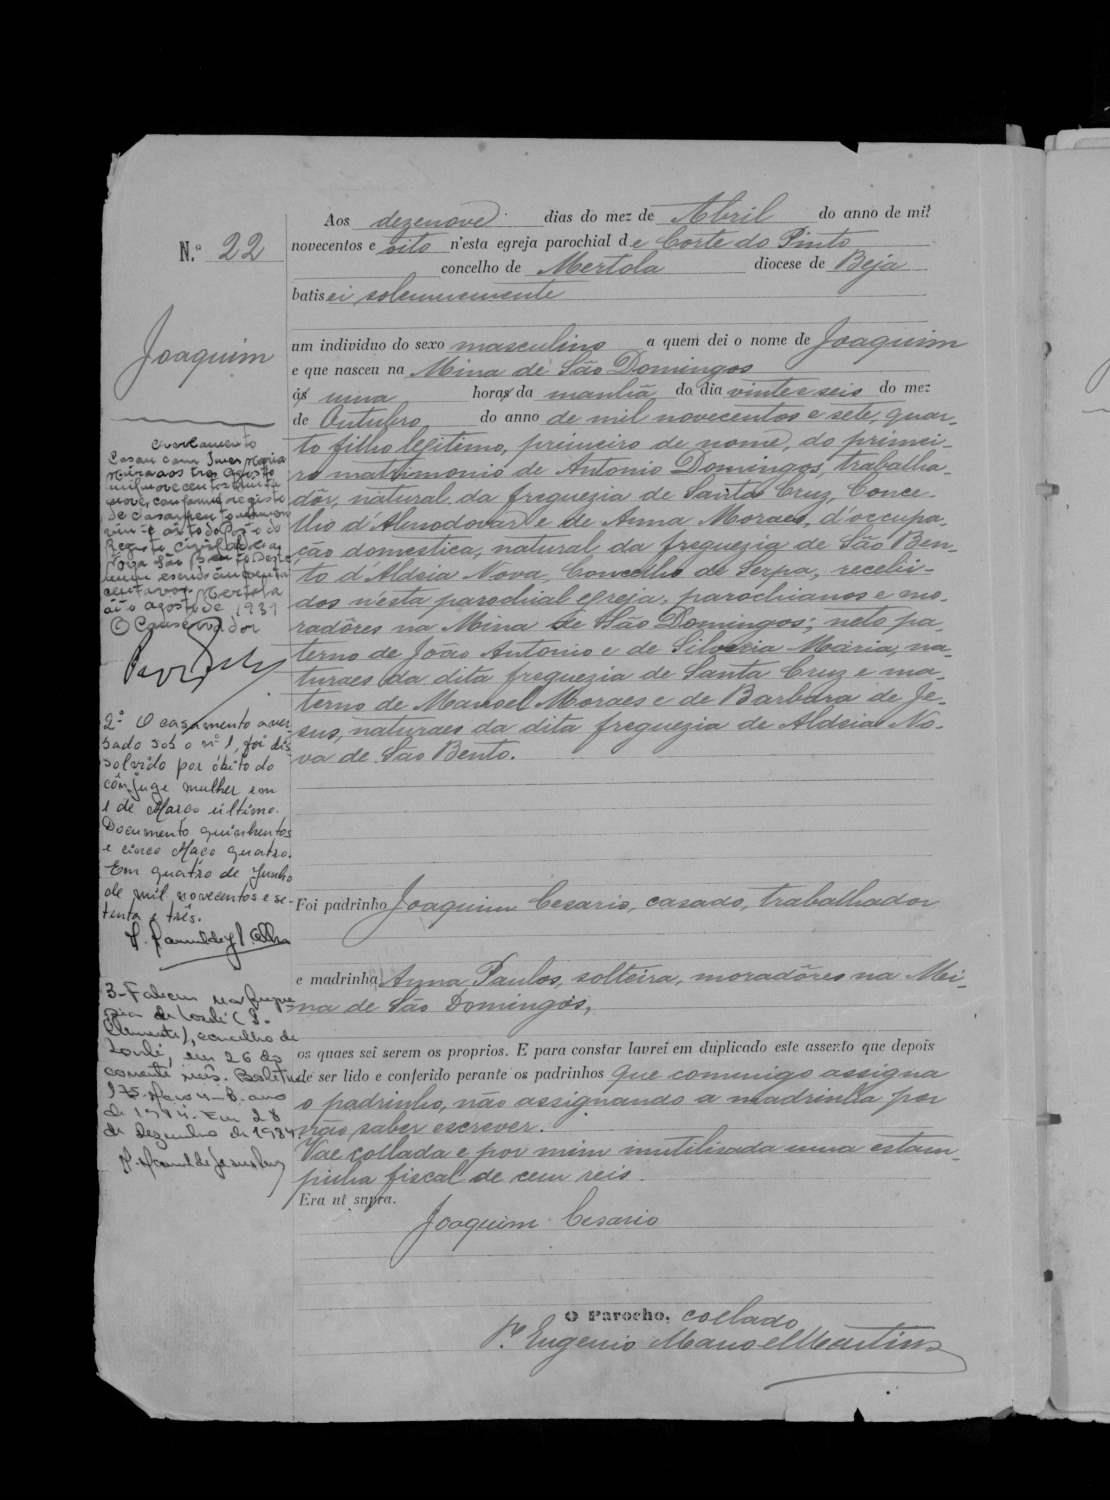 N.º 22
Joaquim
Aos dezenove dias do mez de Abril do anno de mil
novecentos e oito n'esta egreja parochial de Corte do Pinto
concelho de Mertola diocese de Beja
batisei solemnemente
um individuo do sexo masculino a quem dei o nome de Joaquim
e que nasceu na Mina de São Domingos
ás uma horas da manhã do dia vinte e seis do mez
de Outubro do anno de mil novecentos e sete, quar-
to filho legitimo, primeiro de nome, do primei-
ro matrimonio de Antonio Domingos, trabalha-
dôr, natural da freguezia de Santa Cruz, Conce-
lho d'Almodovar e de Anna Moraes, d'occupa-
ção domestica, natural da freguezia de São Ben-
to d'Aldeia Nova, Concelho de Serpa, recebi-
dos n'esta parochial egreja, parochianos e mo-
radôres na Mina de São Domingos; neto pa-
terno de João Antonio e de Silveria Maria, na-
turaes da dita freguezia de Santa Cruz e ma-
terno de Manoel Moraes e de Barbara de Je-
sus, naturaes da dita freguezia de Aldeia No-
va de São Bento.
Foi padrinho Joaquim Cesario, casado, trabalhador
e madrinha Anna Paulos, solteira, moradôres na Mi-
na de São Domingos,
os quaes sei serem os proprios. E para constar lavrei em duplicado este assento que depois
de ser lido e conferido perante os padrinhos que commigo assigna
o padrinho, não assignando a madrinha por
não saber escrever.
Vae collada e por mim inutilisada uma estam-
pinha fiscal de cem reis.
Era ut supra.
Joaquim Cesario
O Parocho, collado
P.e Eugenio Manoel Martins
Casou com Ines Maria
aos tres Agosto
mil novecentos trinta
nove, conforme registo
de casamento numero
oito do Posto do
Registo Civil de
Nova São Bento
centavos. Mertola
oito agosto de 1939
O Conservador
2.º O casamento aver-
bado sob o nº 1, foi dis-
solvido por óbito do
cônjuge mulher, em
1 de Março último.
Documento quinhentos
e cinco Maço quatro.
Em quatro de Junho
de mil novecentos e se-
tenta e três.
3- Faleceu na fregue-
sia de Loulé (S.
Clemente), concelho de
Loulé, em 26 do
corrente mês. Boletim
175. Maço 4-B. ano
de 1984. Em 28
de dezembro de 1984.